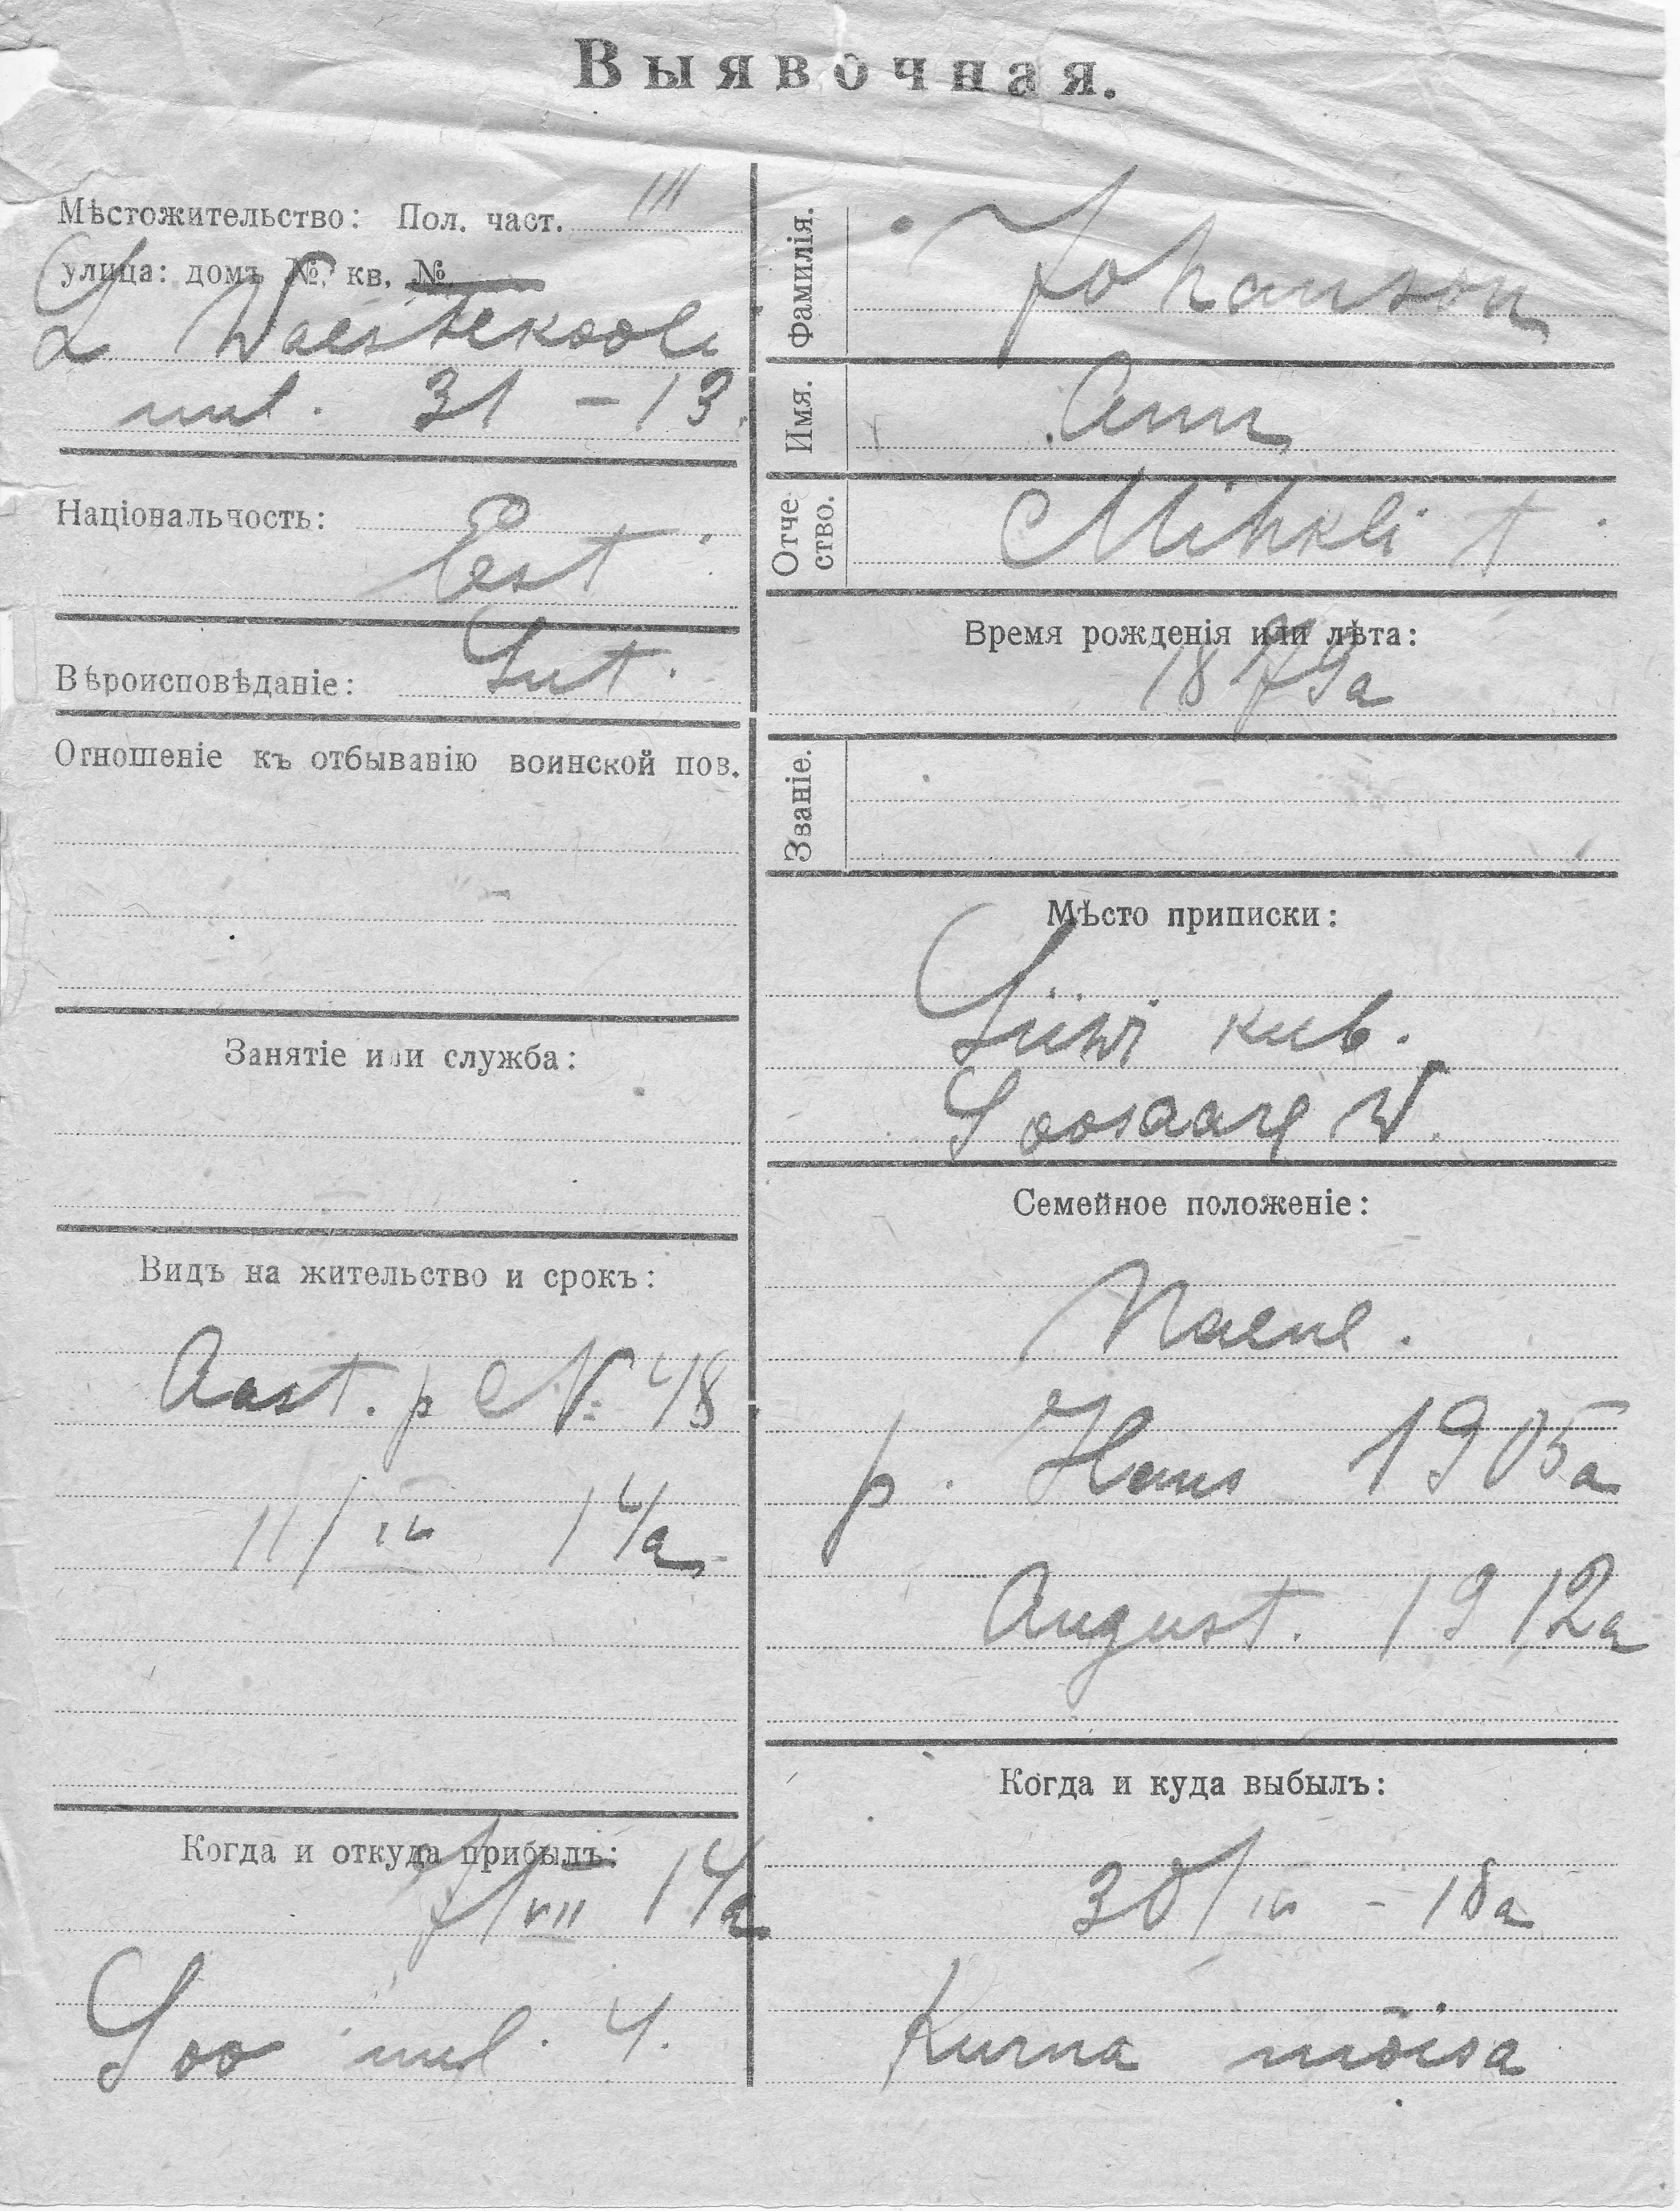 Выявочная.
Мѣстожительство: Пол. част. III
улица: домъ №, кв. №
L Waestekooli
uul. 31 - 13.
Національность:
Eest.
Вѣроисповѣданіе: Lut.
Отношеніе къ отбыванію воинской пов.
Занятіе или служба:
Видъ на жительство и срокъ:
Aast. p № 48
11/III 14a
Когда и откуда прибылъ:
7/VII 14a
Soo uul. 4.
Фамилія. Johanson
Имя. Ann
Отчество. Mihkli t.
Время рожденія или лѣта:
1879a
Званіе.
Мѣсто приписки:
Liiwi kub.
Loosaare w.
Семейное положеніе:
Naene.
p. Hans 1905a
August. 1912a
Когда и куда выбылъ:
30/III - 18a
Kurna mõisa